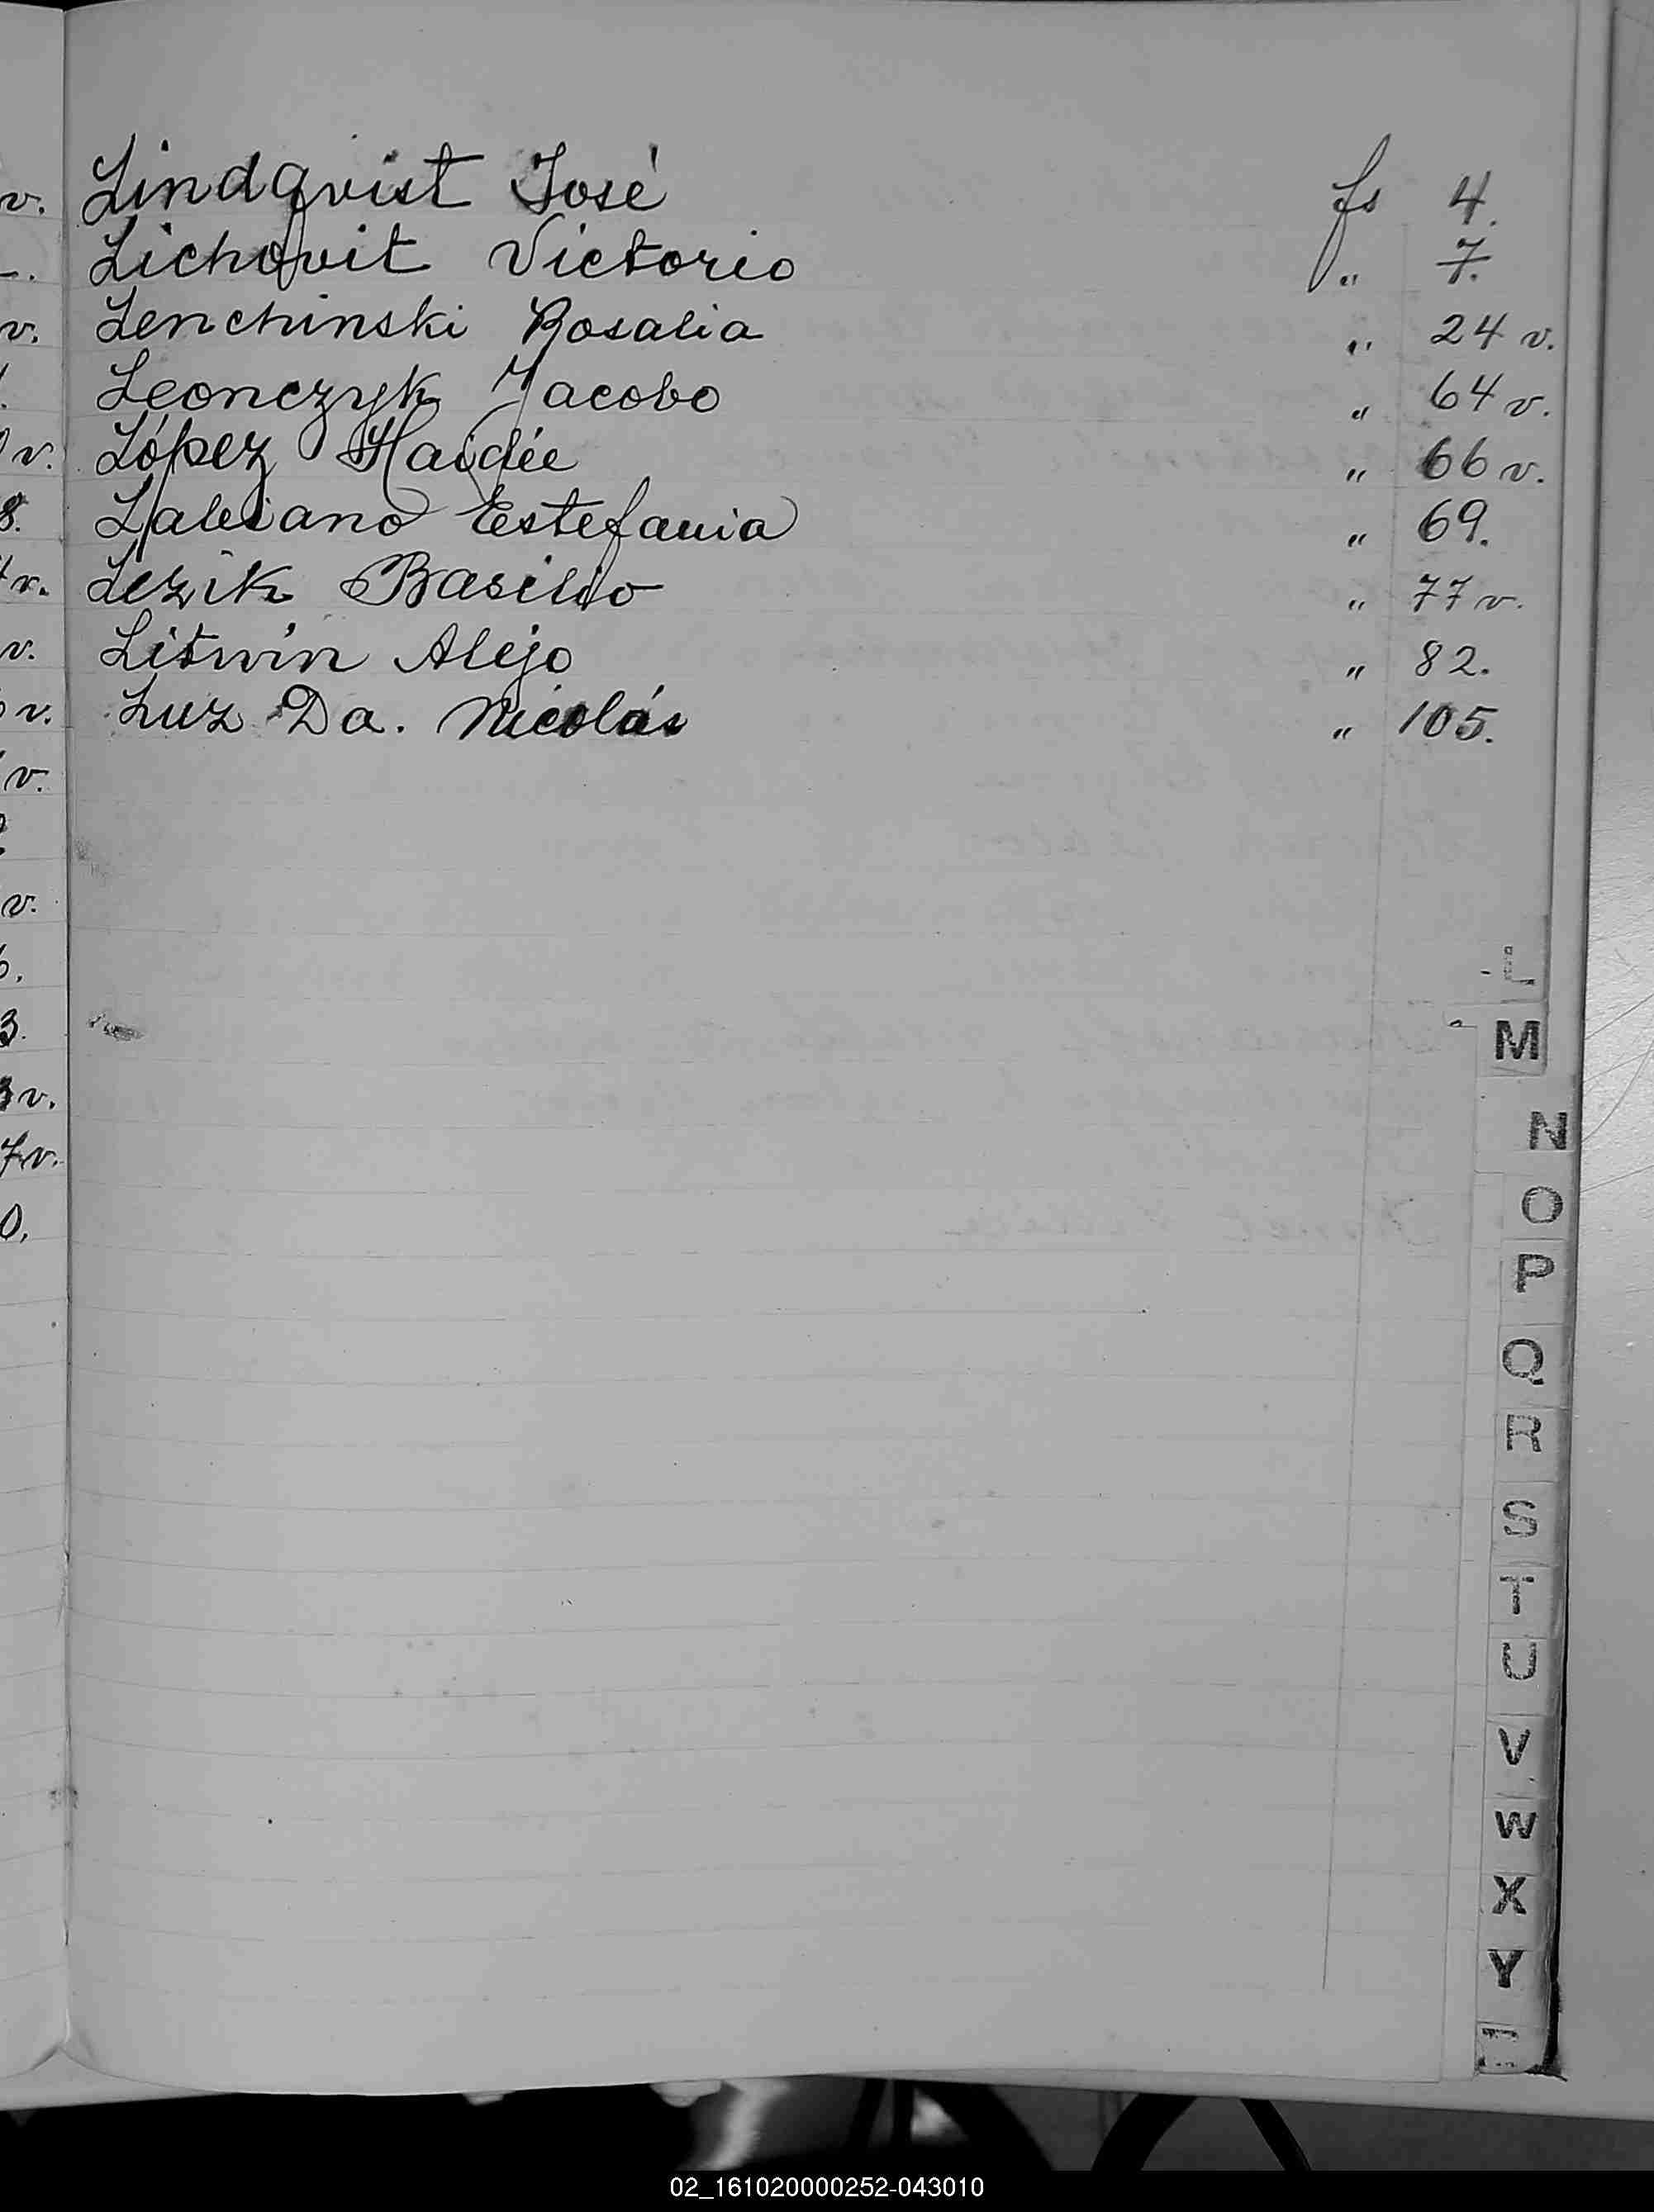 Lindqvist José fs 4.
Lichovit Victorio " 7.
Lenchinski Rosalia " 24 v.
Leonczyk Jacobo " 64 v.
López Haidée " 66 v.
Labiano Estefania " 69.
Lezik Basilio " 77 v.
Litwin Alejo " 82.
Luz Da. Nicolás " 105.
L
M
N
O
P
Q
R
S
T
U
V
W
X
Y
02_161020000252-043010